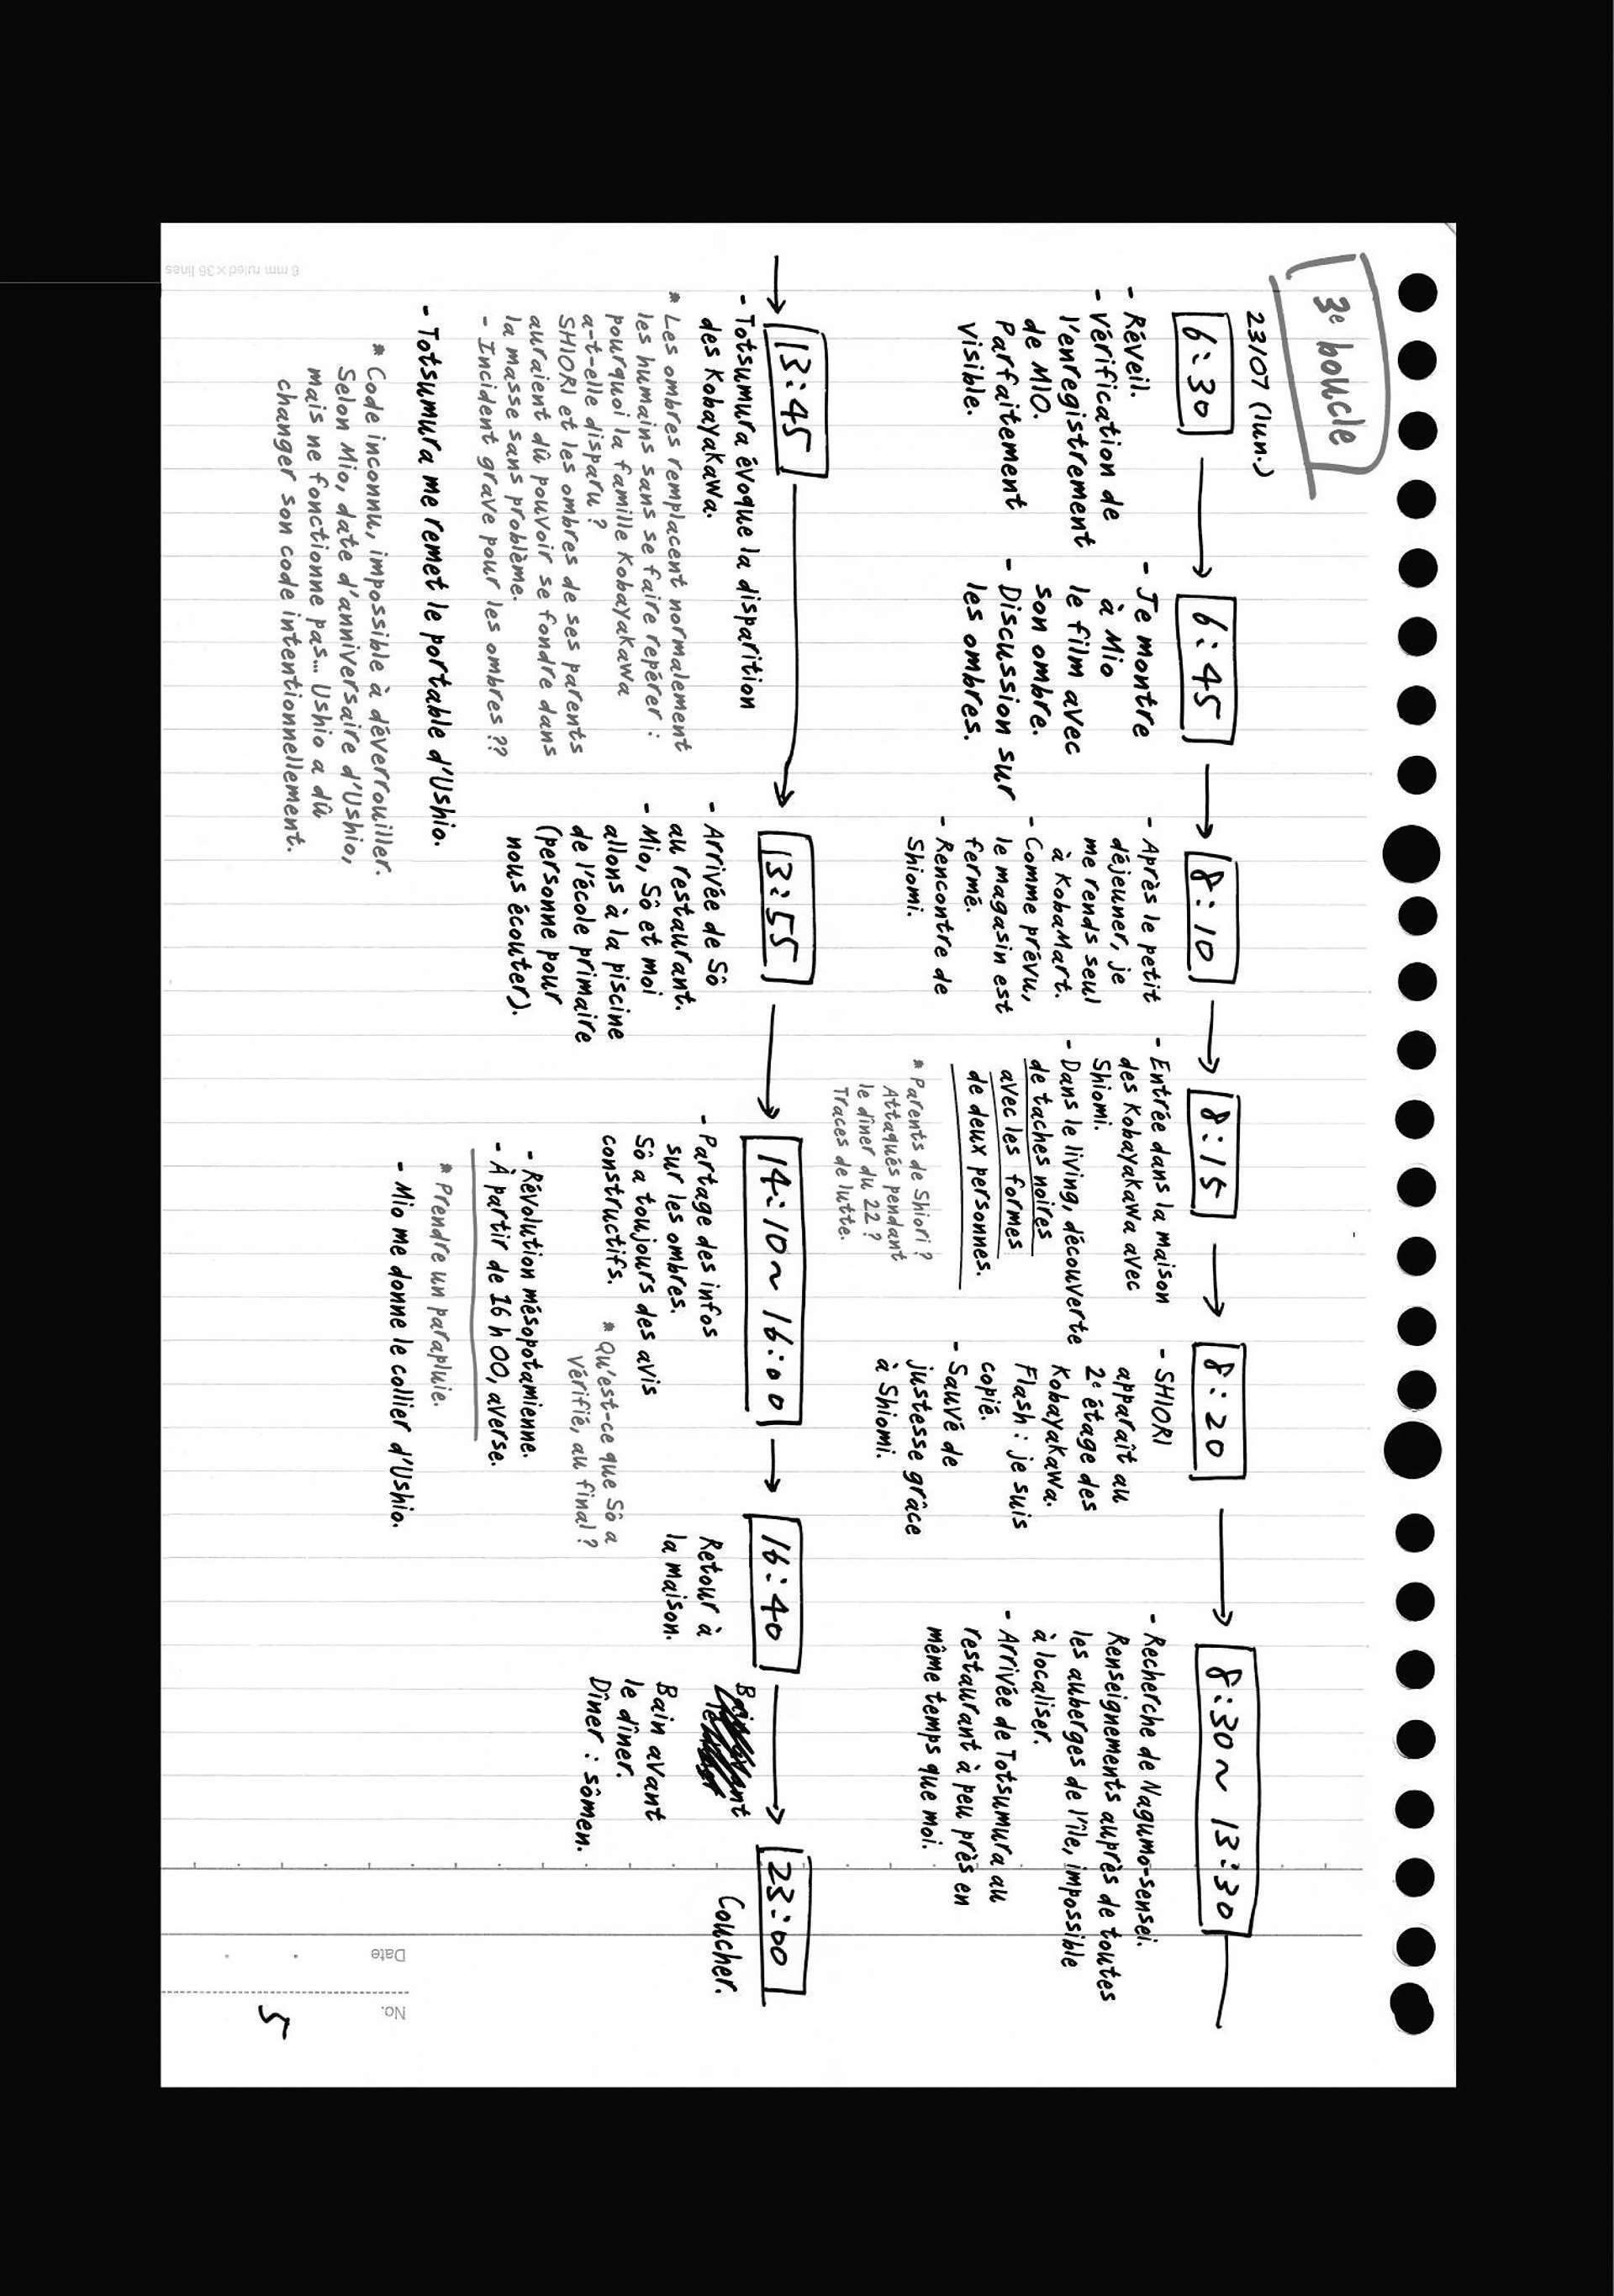 3e boucle
23/07 (lun.)
6:30
- Réveil.
- Vérification de
l'enregistrement
de MIO.
Parfaitement
visible.
6:45
- Je montre
à Mio
le film avec
son ombre.
- Discussion sur
les ombres.
8:10
- Après le petit
déjeuner, je
me rends seul
à KobaMart.
- Comme prévu,
le magasin est
fermé.
- Rencontre de
Shiomi.
8:15
- Entrée dans la maison
des Kobayakawa avec
Shiomi.
- Dans le living, découverte
de taches noires
avec les formes
de deux personnes.
* Parents de Shiori ?
Attaqués pendant
le dîner du 22 ?
Traces de lutte.
8:20
- SHIORI
apparaît au
2e étage des
Kobayakawa.
Flash : je suis
copié.
- Sauvé de
justesse grâce
à Shiomi.
8:30~13:30
- Recherche de Nagumo-sensei.
Renseignements auprès de toutes
les auberges de l'île, impossible
à localiser.
- Arrivée de Totsumura au
restaurant à peu près en
même temps que moi.
13:45
- Totsumura évoque la disparition
des Kobayakawa.
* Les ombres remplacent normalement
les humains sans se faire repérer :
pourquoi la famille Kobayakawa
a-t-elle disparu ?
SHIORI et les ombres de ses parents
auraient dû pouvoir se fondre dans
la masse sans problème.
- Incident grave pour les ombres ??
- Totsumura me remet le portable d'Ushio.
* Code inconnu, impossible à déverrouiller.
Selon Mio, date d'anniversaire d'Ushio,
mais ne fonctionne pas... Ushio a dû
changer son code intentionnellement.
13:55
- Arrivée de Sô
au restaurant.
- Mio, Sô et moi
allons à la piscine
de l'école primaire
(personne pour
nous écouter).
14:10~16:00
- Partage des infos
sur les ombres.
Sô a toujours des avis
constructifs.
* Qu'est-ce que Sô a
vérifié, au final ?
- Révolution mésopotamienne.
- À partir de 16 h 00, averse.
* Prendre un parapluie.
- Mio me donne le collier d'Ushio.
16:40
Retour à
la maison.
Bain avant
le dîner.
Dîner : sômen.
23:00
Coucher.
6 mm ruled×36 lines
Date
No.
5